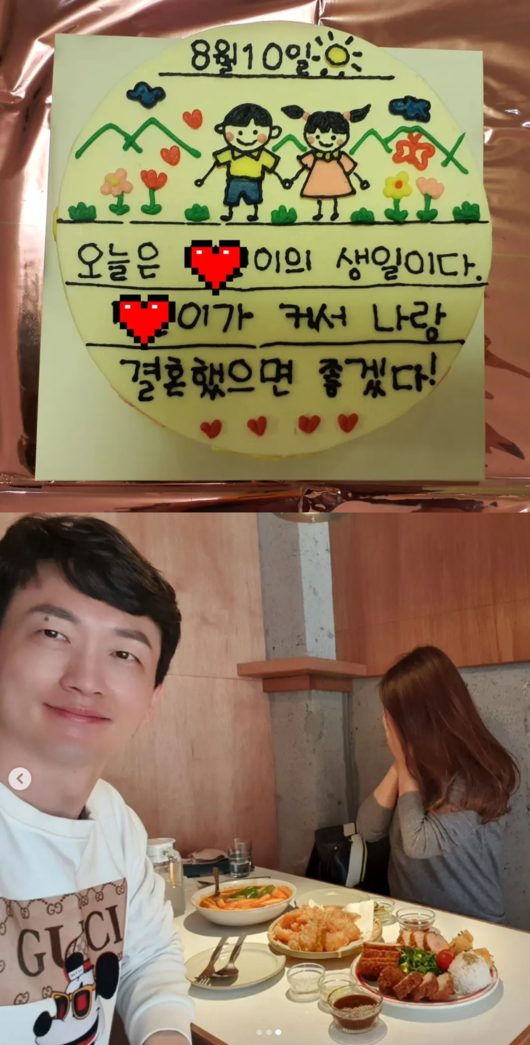 8월10일
오늘은 이의 생일이다.
이가 커서 나랑
결혼했으면 좋겠다!
GUCCI